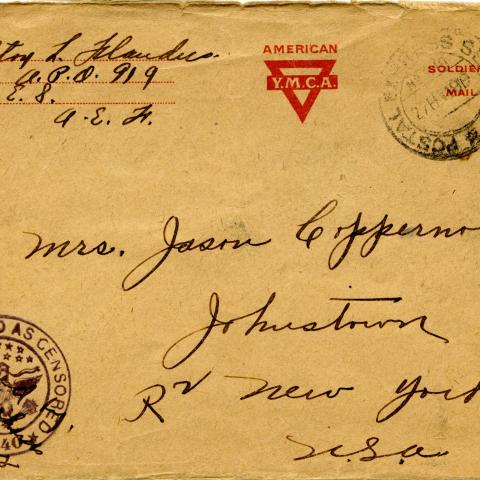 L. Flanders.
A.P.O. 919
E. S.
A. E. F.
AMERICAN
Y.M.C.A.
SOLDIER
MAIL
POSTAL
Mrs. Jason Copperno
Johnstown
New York
U.S.A
AS CENSORED